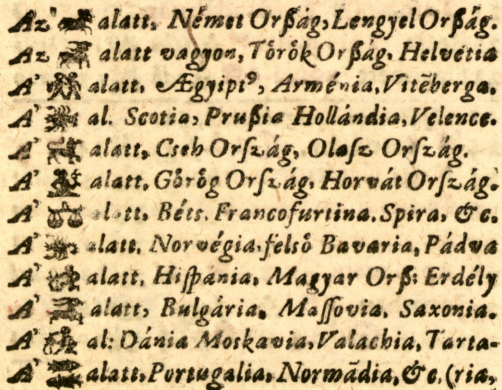 Az alatt, Német Orßág, Lengyel Orßág.
Az alatt vagyon, Tőrők Orßág, Helvetia
A' alatt, Ægyiptꝰ, Arménia, Vitēberga.
A' al. Scotia, Prußia Hollándia, Velence.
A' alatt, Cseh Orſzág, Olasz Orſzág.
A' alatt, Gőrőg Orſzág, Horvát Orſzág.
A' alatt, Béts, Francofurtina, Spira, &c.
A' alatt, Norvégia, felső Bavaria, Pádva
A' alatt, Hiſpania, Magyar Orß: Erdély
A' alatt, Bulgária, Maſſovia, Saxonia.
A' al: Dánia Moskavia, Valachia, Tarta-
A' alatt, Portugalia, Normādia, &c. (ria,